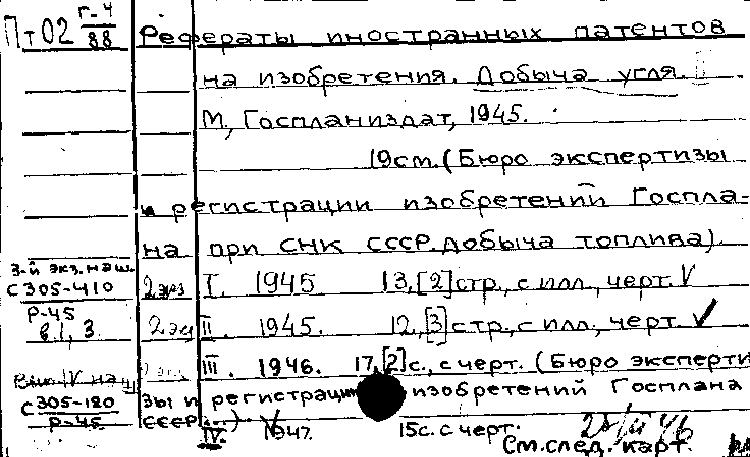 Пт02 Г-4/88 Рефераты иностранных патентов
на изобретения. Добыча угля.
М, Госпланиздат, 1945.
19см. (Бюро экспертизы
и регистрации изобретений Госпла-
на при СНК СССР. Добыча топлива).
3-й экз. наш.
С305-410
2 экз I. 1945 13,[2]стр., с илл., черт. V
Р-45
в.1, 3.
2 экз II. 1945. 12,[3]стр., с илл., черт. V
III. 1946. 17,[2]с., с черт. (Бюро эксперти
Вып. IV
С305-180
Р-45
зы и регистрации изобретений Госплана
СССР) V
IV. 1947. 15с. с черт.
См. след. карт.